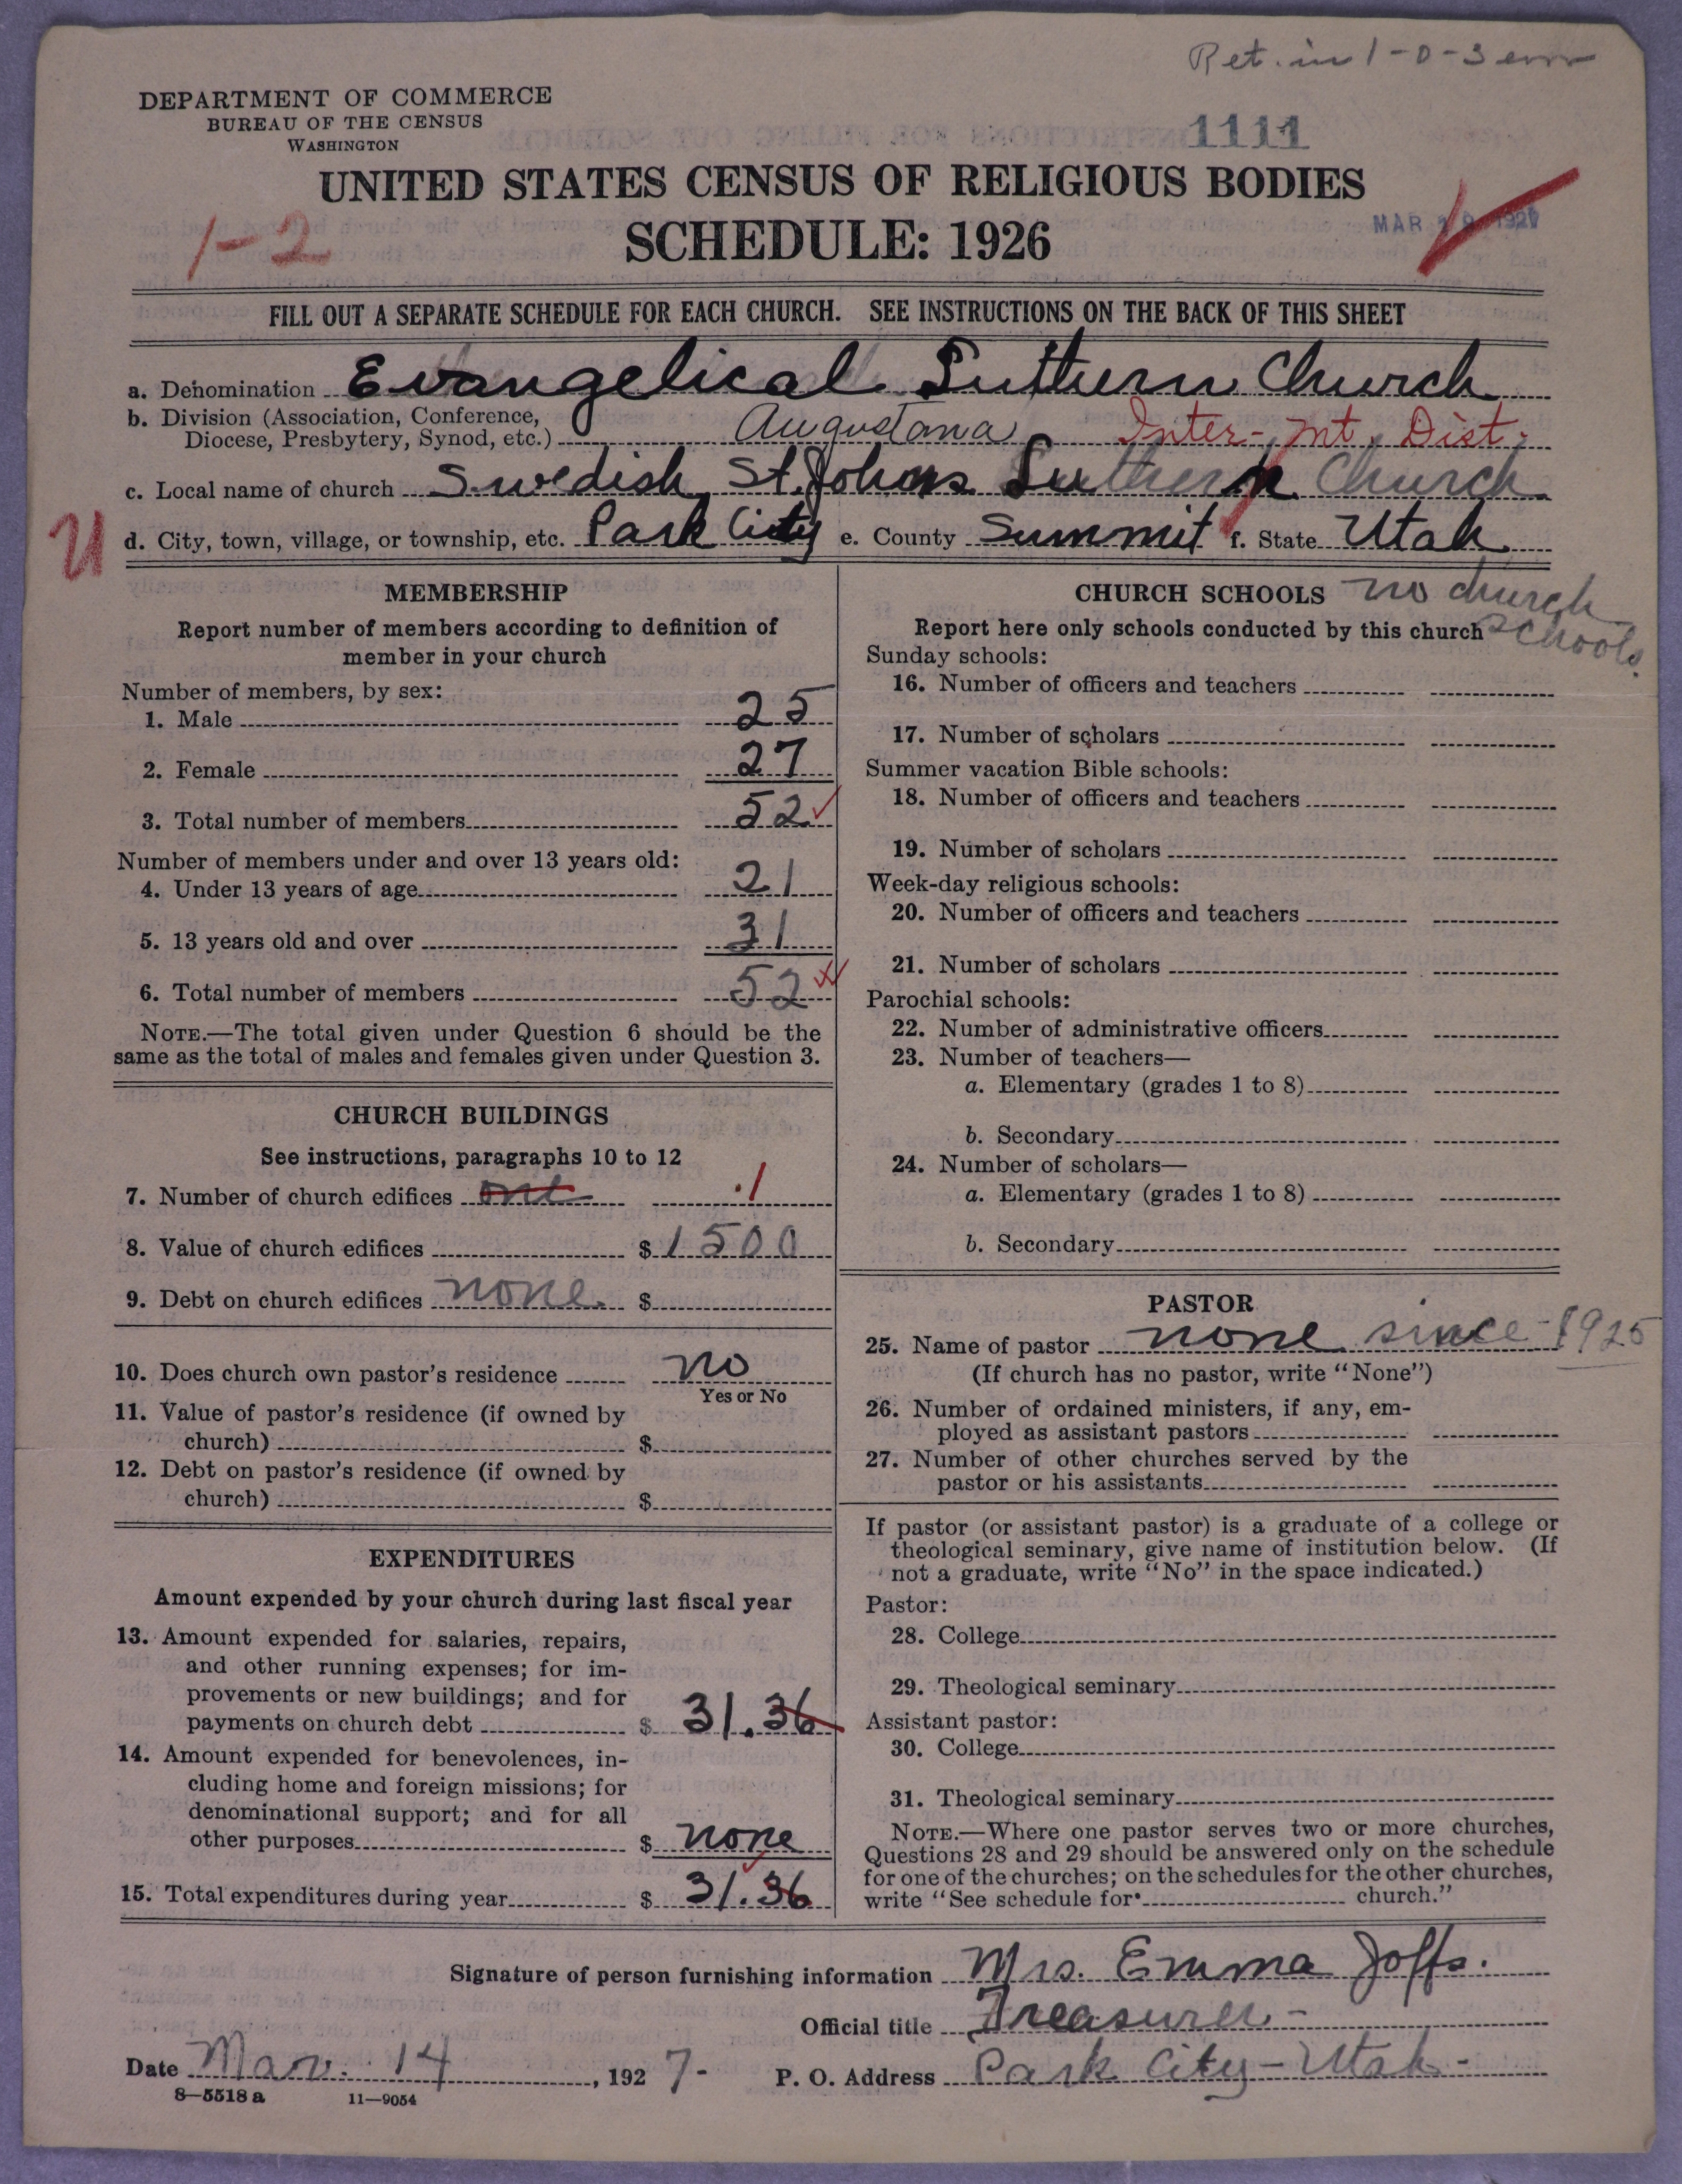 Ret. in 1-0-3
DEPARTMENT OF COMMERCE
BUREAU OF THE CENSUS
WASHINGTON
1111
UNITED STATES CENSUS OF RELIGIOUS BODIES
1-2
SCHEDULE: 1926
MAR 1927
FILL OUT A SEPARATE SCHEDULE FOR EACH CHURCH. SEE INSTRUCTIONS ON THE BACK OF THIS SHEET
a. Denomination Evangelical Luthern Church
b. Division (Association, Conference,
Diocese, Presbytery, Synod, etc.) Augustana Inter-Mt. Dist.
c. Local name of church Swedish St. Johns Luthern Church
U
d. City, town, village, or township, etc. Park City e. County Summit f. State Utah
MEMBERSHIP
Report number of members according to definition of
member in your church
Number of members, by sex:
1. Male 25
2. Female 27
3. Total number of members 52
Number of members under and over 13 years old:
4. Under 13 years of age 21
5. 13 years old and over 31
6. Total number of members 52
NOTE.—The total given under Question 6 should be the
same as the total of males and females given under Question 3.
CHURCH BUILDINGS
See instructions, paragraphs 10 to 12
7. Number of church edifices one 1
8. Value of church edifices $ 1500
9. Debt on church edifices none. $
10. Does church own pastor's residence no
Yes or No
11. Value of pastor's residence (if owned by
church) $
12. Debt on pastor's residence (if owned by
church) $
EXPENDITURES
Amount expended by your church during last fiscal year
13. Amount expended for salaries, repairs,
and other running expenses; for im-
provements or new buildings; and for
payments on church debt $ 31.36
14. Amount expended for benevolences, in-
cluding home and foreign missions; for
denominational support; and for all
other purposes $ none
15. Total expenditures during year $ 31.36
CHURCH SCHOOLS no church
Report here only schools conducted by this church schools.
Sunday schools:
16. Number of officers and teachers
17. Number of scholars
Summer vacation Bible schools:
18. Number of officers and teachers
19. Number of scholars
Week-day religious schools:
20. Number of officers and teachers
21. Number of scholars
Parochial schools:
22. Number of administrative officers
23. Number of teachers—
a. Elementary (grades 1 to 8)
b. Secondary
24. Number of scholars—
a. Elementary (grades 1 to 8)
b. Secondary
PASTOR
25. Name of pastor none since 1925
(If church has no pastor, write "None")
26. Number of ordained ministers, if any, em-
ployed as assistant pastors
27. Number of other churches served by the
pastor or his assistants
If pastor (or assistant pastor) is a graduate of a college or
theological seminary, give name of institution below. (If
not a graduate, write "No" in the space indicated.)
Pastor:
28. College
29. Theological seminary
Assistant pastor:
30. College
31. Theological seminary
NOTE.—Where one pastor serves two or more churches,
Questions 28 and 29 should be answered only on the schedule
for one of the churches; on the schedules for the other churches,
write "See schedule for church."
Signature of person furnishing information Mrs. Emma Joffs.
Official title Treasurer-
Date Mar. 14, 1927- P. O. Address Park City-Utah-
8-5518 a 11-9054